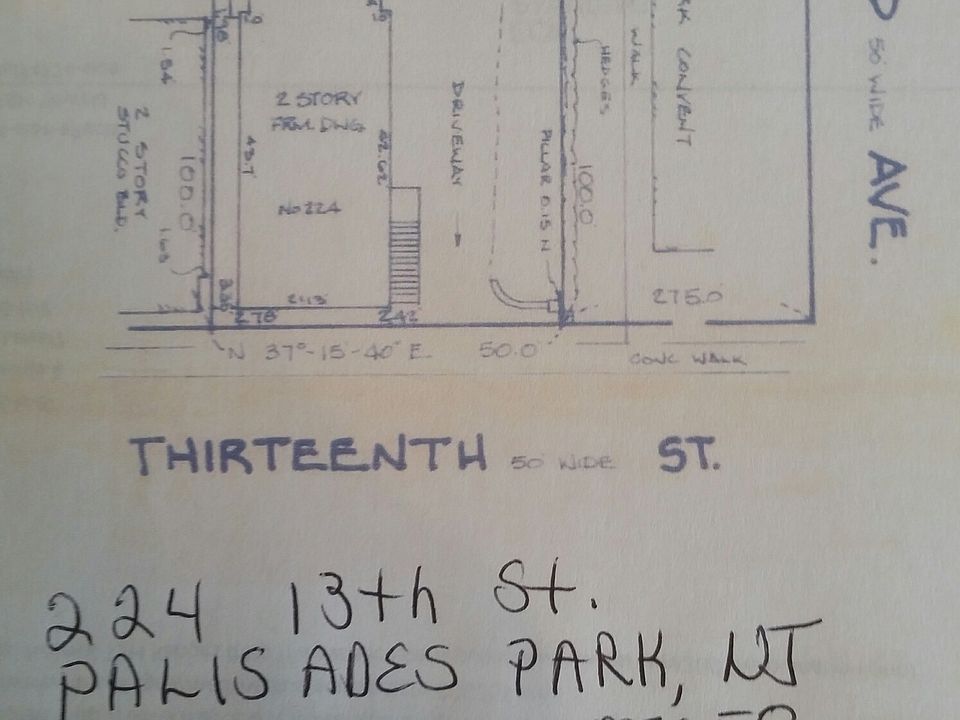 50' WIDE AVE.
RK CONVENT
WALK
HEDGES
100.0
PILLAR 0.15 N
DRIVEWAY
2 STORY
FRM. DWG
No 224
43.7
22.62
1.84
2 STORY
STUCCO BLD.
100.0
1.63
275.0
2.78
2.42
N 37°-15'-40" E. 50.0
CONC WALK
THIRTEENTH 50' WIDE ST.
224 13th St.
PALISADES PARK, NJ